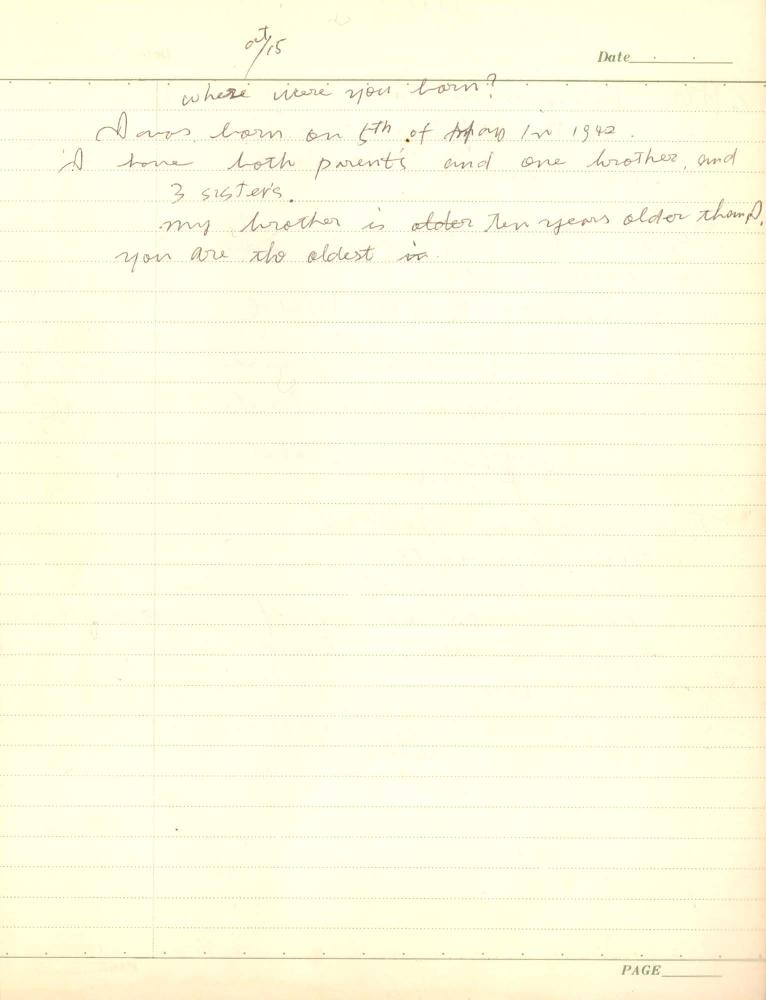 oct/15
Date
where were you born?
I was born on 5th of in 1942.
I have both parent's and one brother, and
3 sister's.
my brother is older ten years older than I.
you are the oldest in
PAGE